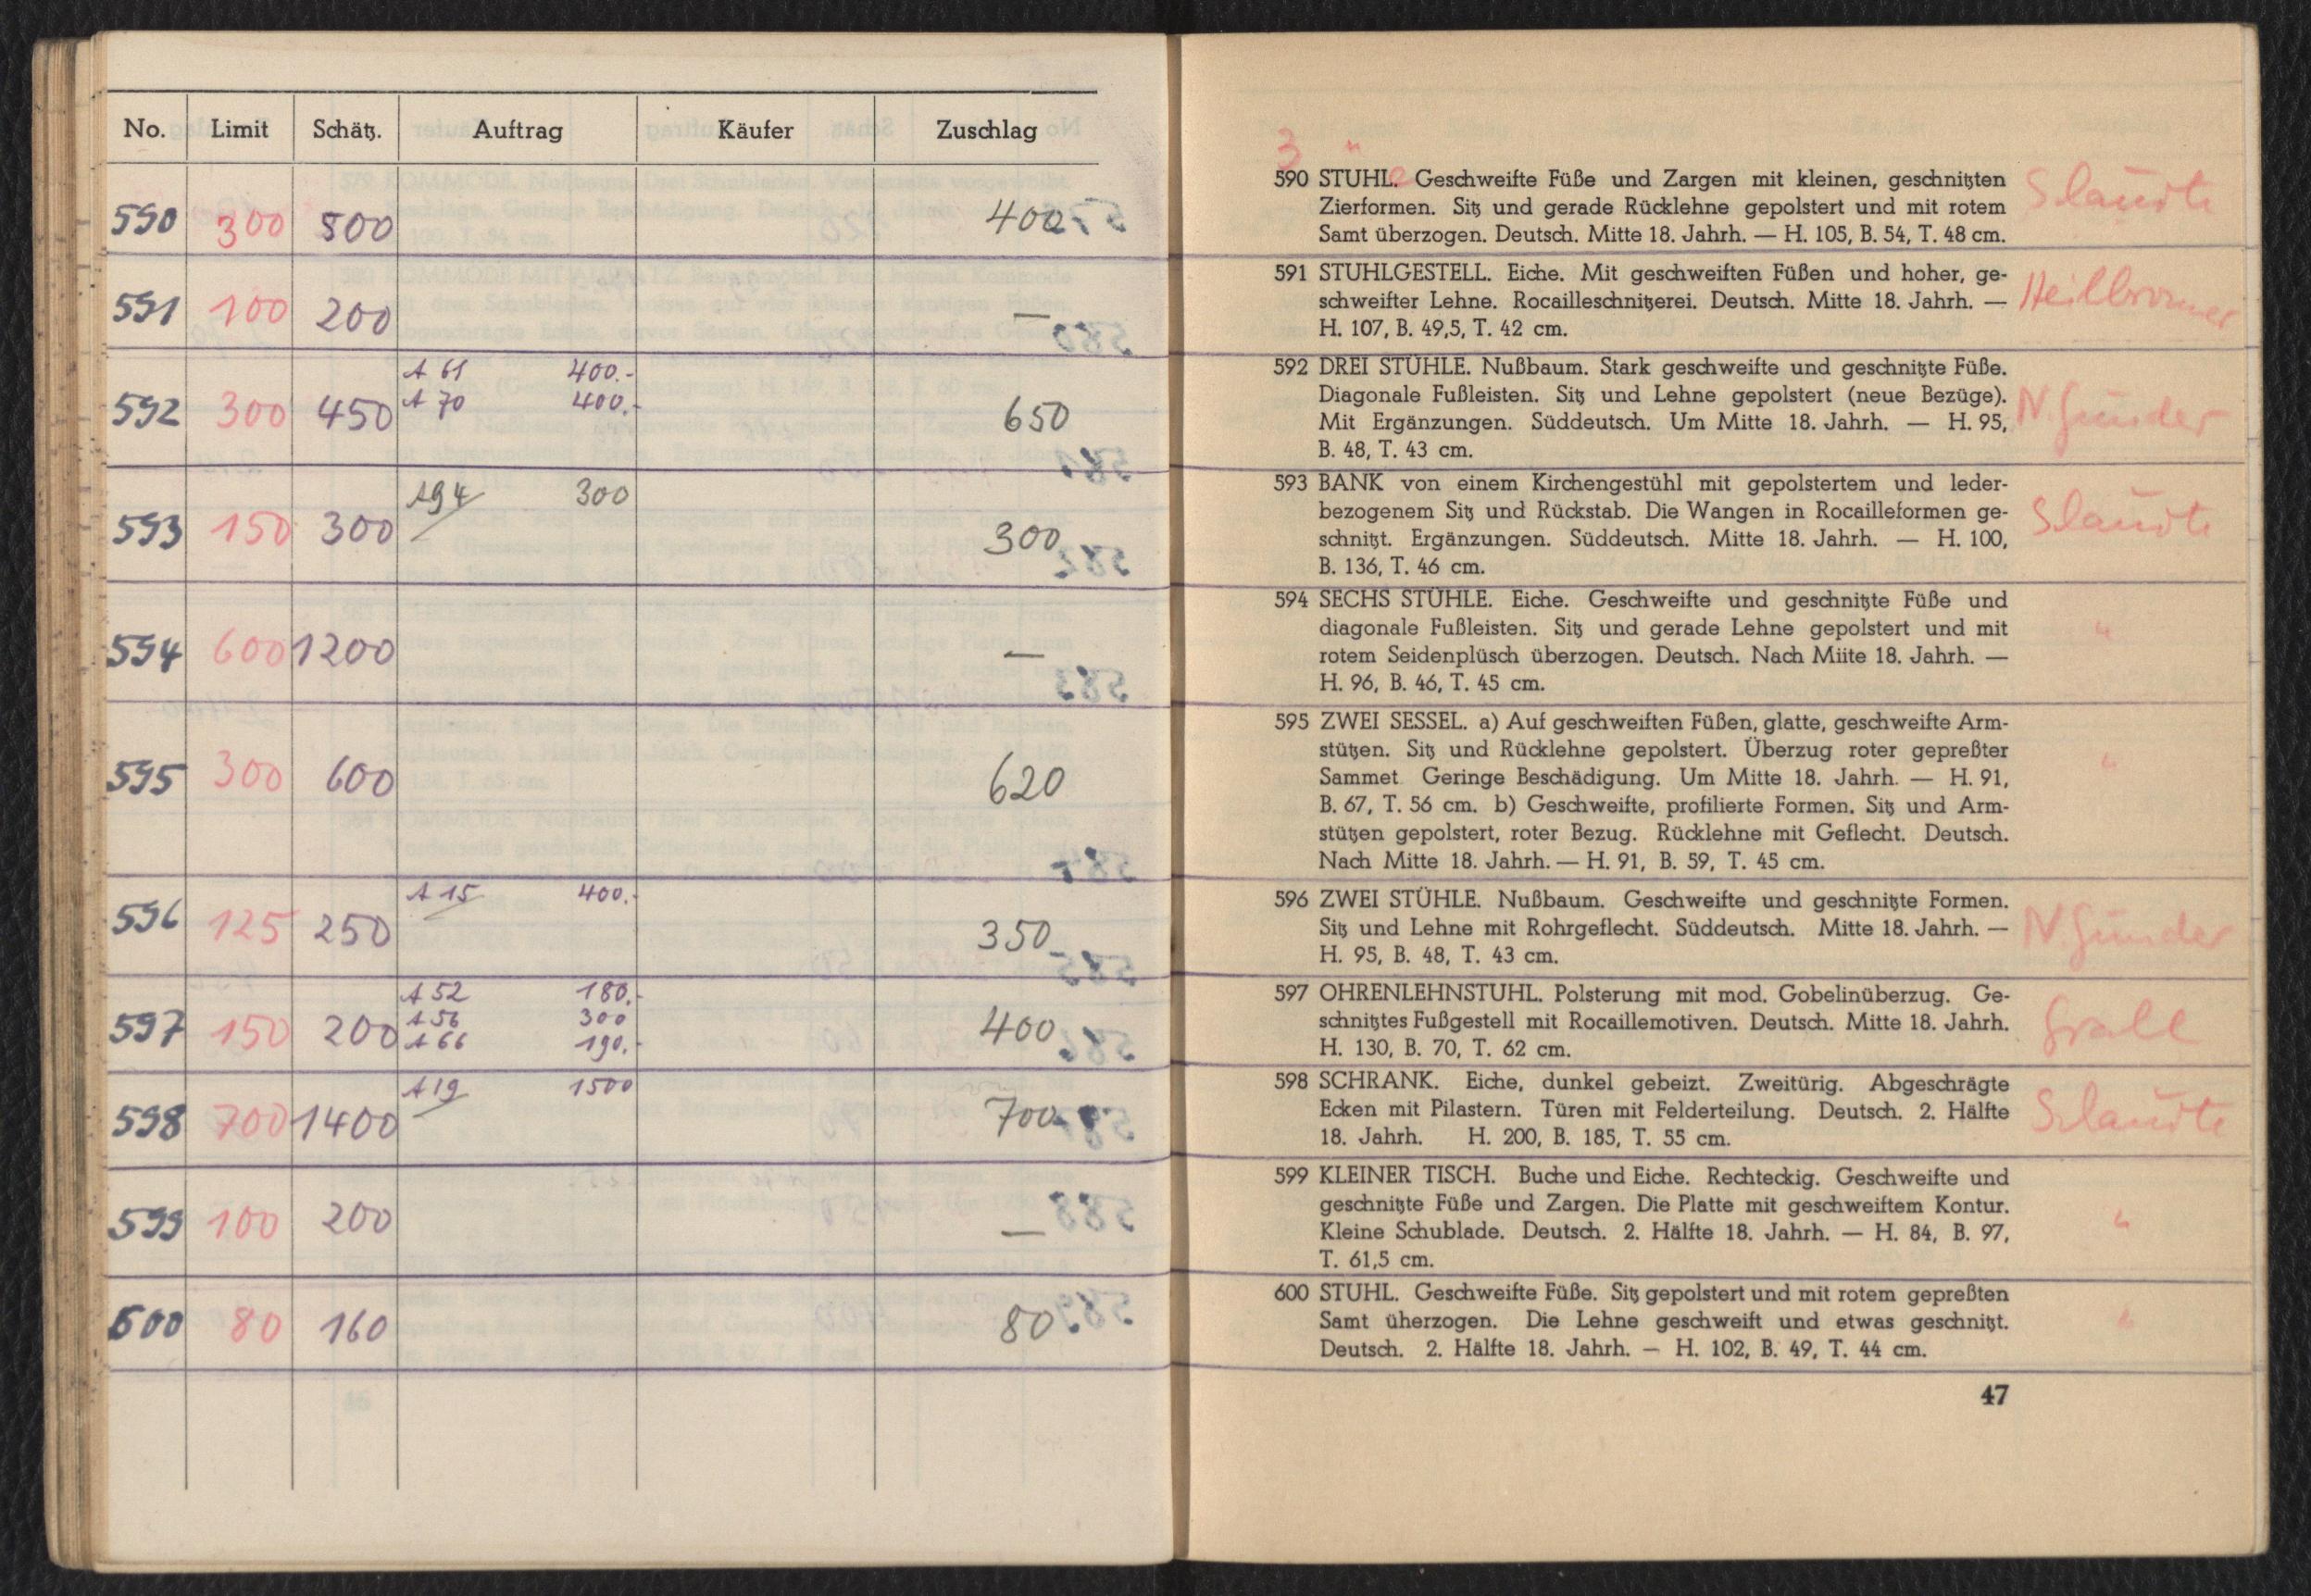 No. Limit Schätz. Auftrag Käufer Zuschlag
590 300 500 400
591 100 200 —
592 300 450 A 61 400.- 650
A 70 400.-
593 150 300 A 94 300 300
594 600 1200 —
595 300 600 620
596 125 250 A 15 400.- 350
597 150 200 A 52 180.- 400
A 56 300
A 66 190.-
598 700 1400 A 19 1500 700
599 100 200 —
600 80 160 80
3 "
590 STUHL. Geschweifte Füße und Zargen mit kleinen, geschnitzten
Zierformen. Sitz und gerade Rücklehne gepolstert und mit rotem
Samt überzogen. Deutsch. Mitte 18. Jahrh. — H. 105, B. 54, T. 48 cm.
591 STUHLGESTELL. Eiche. Mit geschweiften Füßen und hoher, ge-
schweifter Lehne. Rocailleschnitzerei. Deutsch. Mitte 18. Jahrh. —
H. 107, B. 49,5, T. 42 cm.
Heilbronner
592 DREI STÜHLE. Nußbaum. Stark geschweifte und geschnitzte Füße.
Diagonale Fußleisten. Sitz und Lehne gepolstert (neue Bezüge).
Mit Ergänzungen. Süddeutsch. Um Mitte 18. Jahrh. — H. 95,
B. 48, T. 43 cm.
N. Günder
593 BANK von einem Kirchengestühl mit gepolstertem und leder-
bezogenem Sitz und Rückstab. Die Wangen in Rocailleformen ge-
schnitzt. Ergänzungen. Süddeutsch. Mitte 18. Jahrh. — H. 100,
B. 136, T. 46 cm.
594 SECHS STÜHLE. Eiche. Geschweifte und geschnitzte Füße und
diagonale Fußleisten. Sitz und gerade Lehne gepolstert und mit
rotem Seidenplüsch überzogen. Deutsch. Nach Miite 18. Jahrh. —
H. 96, B. 46, T. 45 cm.
"
595 ZWEI SESSEL. a) Auf geschweiften Füßen, glatte, geschweifte Arm-
stützen. Sitz und Rücklehne gepolstert. Überzug roter gepreßter
Sammet Geringe Beschädigung. Um Mitte 18. Jahrh. — H. 91,
B. 67, T. 56 cm. b) Geschweifte, profilierte Formen. Sitz und Arm-
stützen gepolstert, roter Bezug. Rücklehne mit Geflecht. Deutsch.
Nach Mitte 18. Jahrh. — H. 91, B. 59, T. 45 cm.
"
596 ZWEI STÜHLE. Nußbaum. Geschweifte und geschnitzte Formen.
Sitz und Lehne mit Rohrgeflecht. Süddeutsch. Mitte 18. Jahrh. —
H. 95, B. 48, T. 43 cm.
N. Günder
597 OHRENLEHNSTUHL. Polsterung mit mod. Gobelinüberzug. Ge-
schnitztes Fußgestell mit Rocaillemotiven. Deutsch. Mitte 18. Jahrh.
H. 130, B. 70, T. 62 cm.
598 SCHRANK. Eiche, dunkel gebeizt. Zweitürig. Abgeschrägte
Ecken mit Pilastern. Türen mit Felderteilung. Deutsch. 2. Hälfte
18. Jahrh. H. 200, B. 185, T. 55 cm.
599 KLEINER TISCH. Buche und Eiche. Rechteckig. Geschweifte und
geschnitzte Füße und Zargen. Die Platte mit geschweiftem Kontur.
Kleine Schublade. Deutsch. 2. Hälfte 18. Jahrh. — H. 84, B. 97,
T. 61,5 cm.
"
600 STUHL. Geschweifte Füße. Sitz gepolstert und mit rotem gepreßten
Samt üherzogen. Die Lehne geschweift und etwas geschnitzt.
Deutsch. 2. Hälfte 18. Jahrh. — H. 102, B. 49, T. 44 cm.
"
47